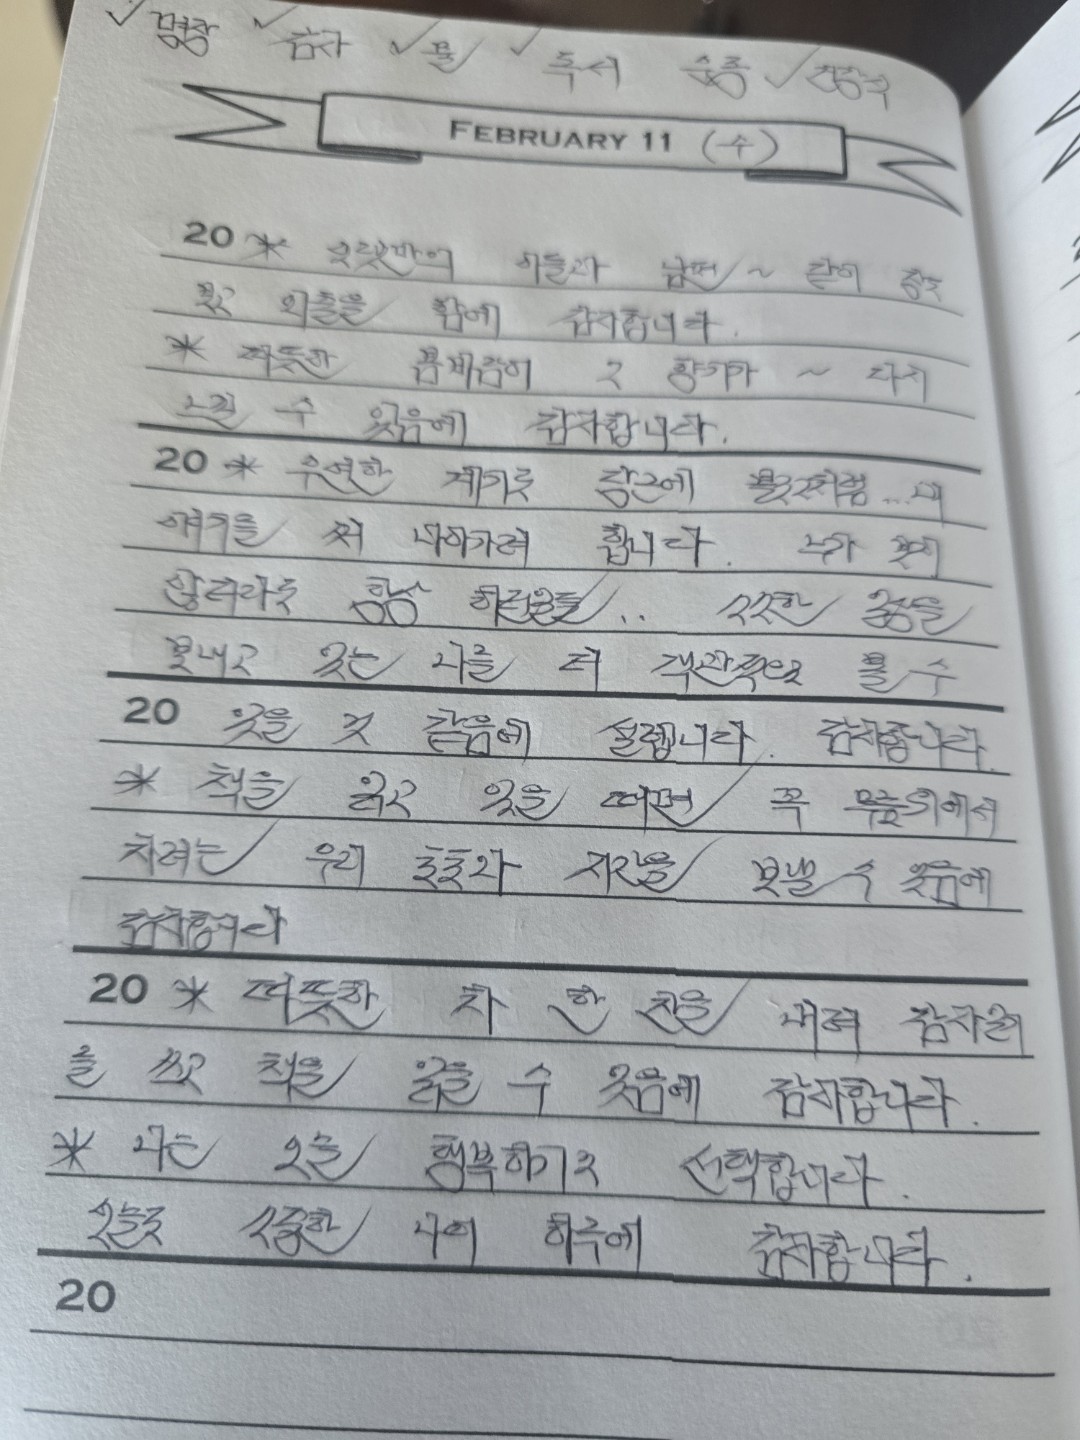 ✓명상 ✓감사 ✓물 ✓독서 운동 ✓
FEBRUARY 11 (수)
20 * 오랫만에 아들과 남편~ 같이 장도
보고 외출을 함에 감사합니다.
* 따뜻한 봄바람이 그 향기가 ~ 다시
느낄 수 있음에 감사합니다.
20 * 우연한 계기로 당근에 블로그처럼... 내
얘기를 써 나아가려 합니다. 누가 보지
않더라도 항상 .. 꼬꼬한 을
보내고 있는 나를 더 객관적으로 볼 수
20 있을 것 같음에 설렙니다. 감사합니다.
* 책을 읽고 있을 때면 꼭 무릎위에서
자려는 우리 호호와 시간을 보낼 수 있음에
감사합니다
20 * 따뜻한 차 한 잔을 내려 감사일기
를 쓰고 책을 읽을 수 있음에 감사합니다.
* 나는 오늘 행복하기로 선택합니다.
오늘도 소중한 나의 하루에 감사합니다.
20